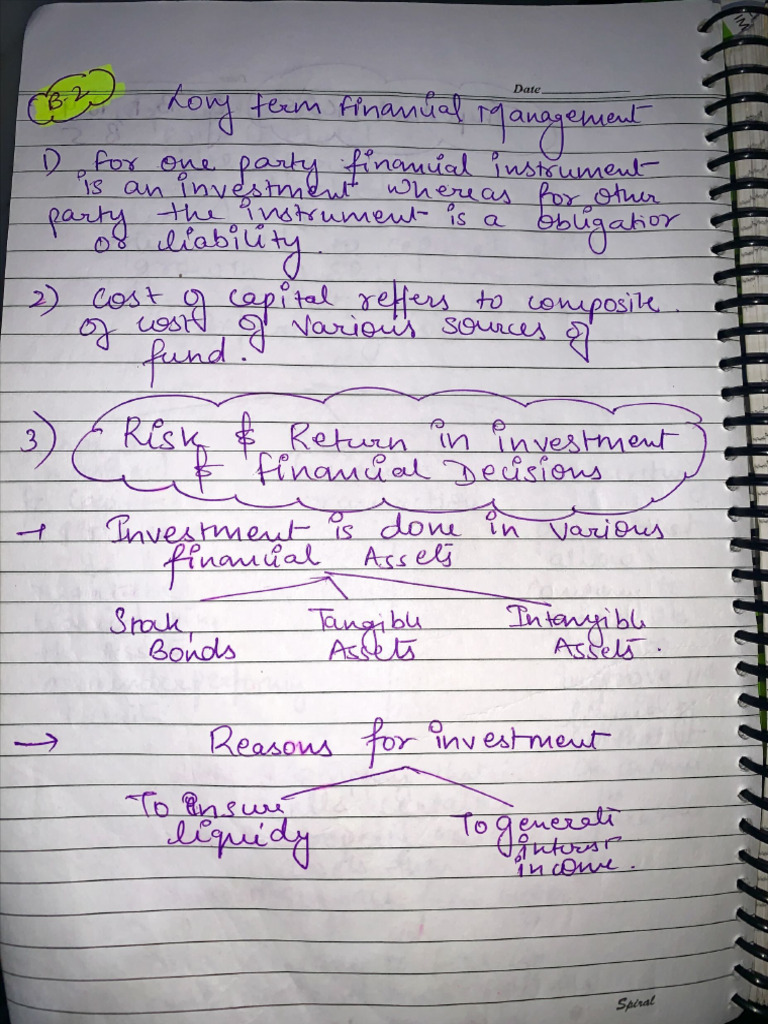 Date
B-2
Long term financial Management
1) for one party financial instrument
is an investment whereas for other
party the instrument is a obligation
or liability.
2) cost of capital reffers to composite
of cost of various sources of
fund.
3) Risk & Return in investment
& financial Decisions
→ Investment is done in various
financial Assets
Stok, Tangible Intangible
Bonds Assets Assets.
→ Reasons for investment
To ensure To generate
liquidy interst
income.
Spiral